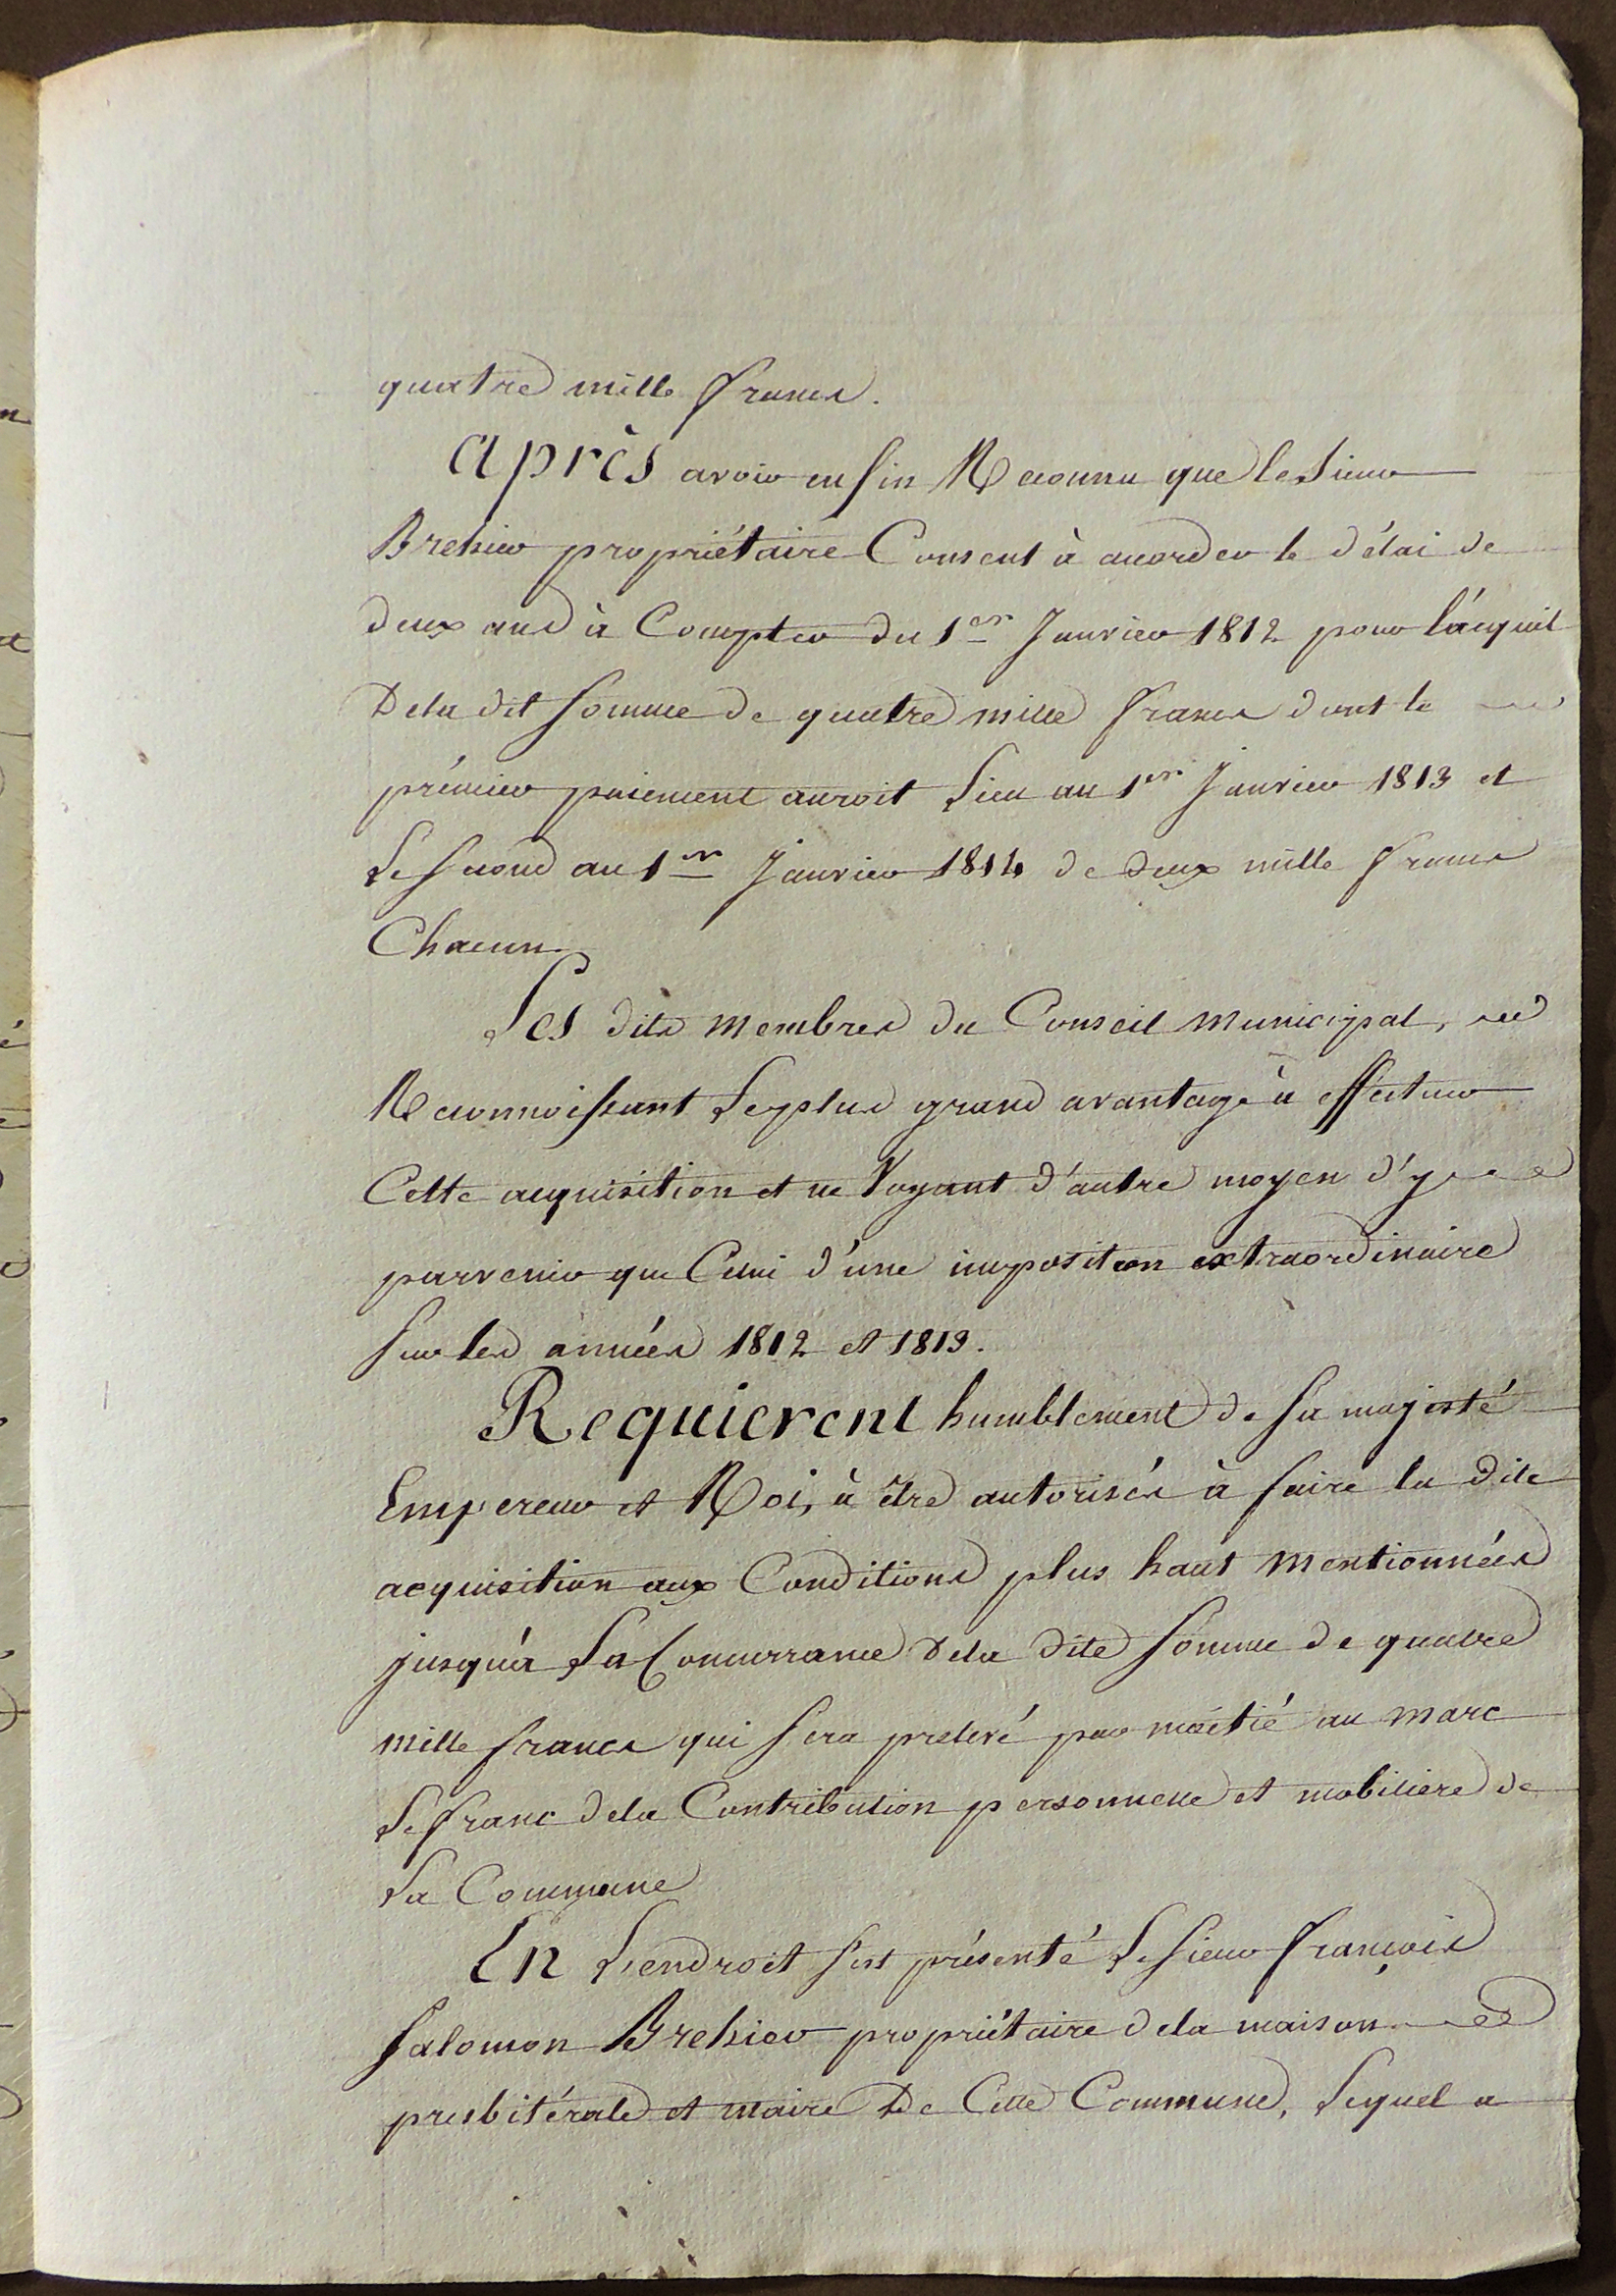 quatre mille francs.
Après avoir enfin Reconnu que le Sieur
Brehier propriétaire Consent à accorder le délai de
deux ans à Compter du 1er Janvier 1812 pour l'acquit
De la dit somme de quatre mille francs dont le
prémier paiement auroit Lieu au 1er Janvier 1813 et
Le second au 1er Janvier 1814 de deux mille francs
Chacun.
Les dits membres du Conseil municipal,
Reconnoissant Le plus grand avantage à effectuer
Cette acquisition et ne Voyant d'autre moyen d'y
parvenir que Celui d'une imposition extraordinaire
sur les années 1812 et 1813.
Requierent humblement de sa majesté
Empereur et Roi, à être autorisés à faire la dite
acquisition aux Conditions plus haut mentionnées
jusqu'à La Concurrance de la dite somme de quatre
mille francs qui sera prelevé par moitié au marc
Le franc de la Contribution personnelle et mobiliere de
La Commune
En L'endroit s'est présenté Le sieur françois
Salomon Brehier propriétaire de la maison
presbitérale et maire De Cette Commune, Lequel a